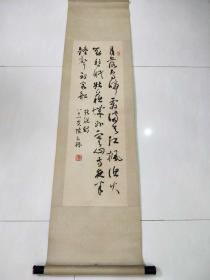 月落烏啼霜滿天江楓漁火
對愁眠姑蘇城外寒山寺夜半
鐘聲到客船
張繼詩
八十一叟